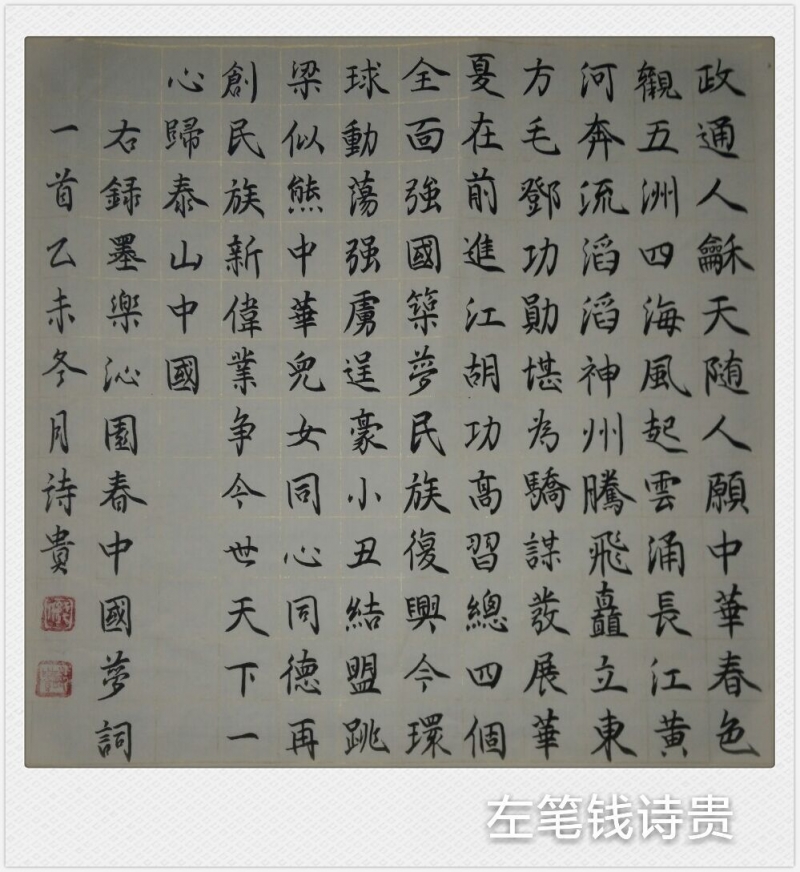 政通人龢天随人願中華春色
觀五洲四海風起雲涌長江黄
河奔流滔滔神州騰飛矗立東
方毛鄧功勛堪為驕謀發展華
夏在前進江胡功高習總四個
全面強國築夢民族復興今環
球動蕩强虜逞豪小丑結盟跳
梁似熊中華兒女同心同德再
創民族新偉業争今世天下一
心歸泰山中國
右録墨樂沁園春中國夢詞
一首乙未冬月诗貴
左笔钱诗贵